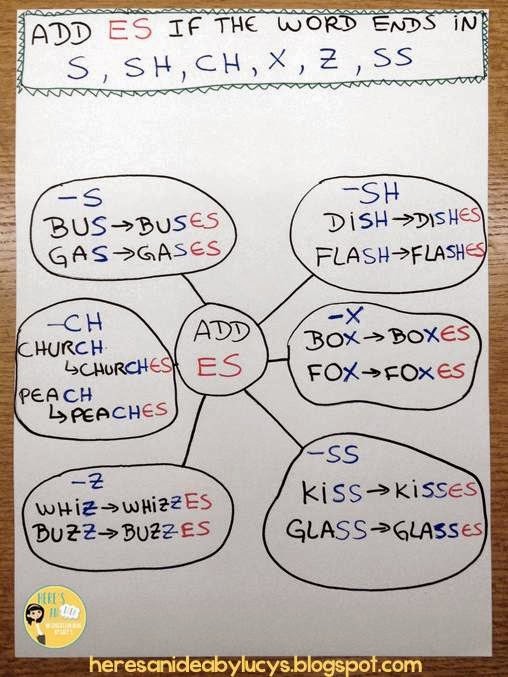 ADD ES IF THE WORD ENDS IN
S, SH, CH, X, Z, SS
-S
BUS→BUSES
GAS→GASES
-SH
DiSH→DiSHES
FLASH→FLASHES
-CH
CHURCH
↳CHURCHES
PEACH
↳PEACHES
ADD
ES
-X
BOX→BOXES
FOX→FOXES
-Z
WHiZ→WHiZZES
BUZZ→BUZZES
-SS
KiSS→KiSSES
GLASS→GLASSES
HERE'S
AN IDEA
heresanideabylucys.blogspot.com